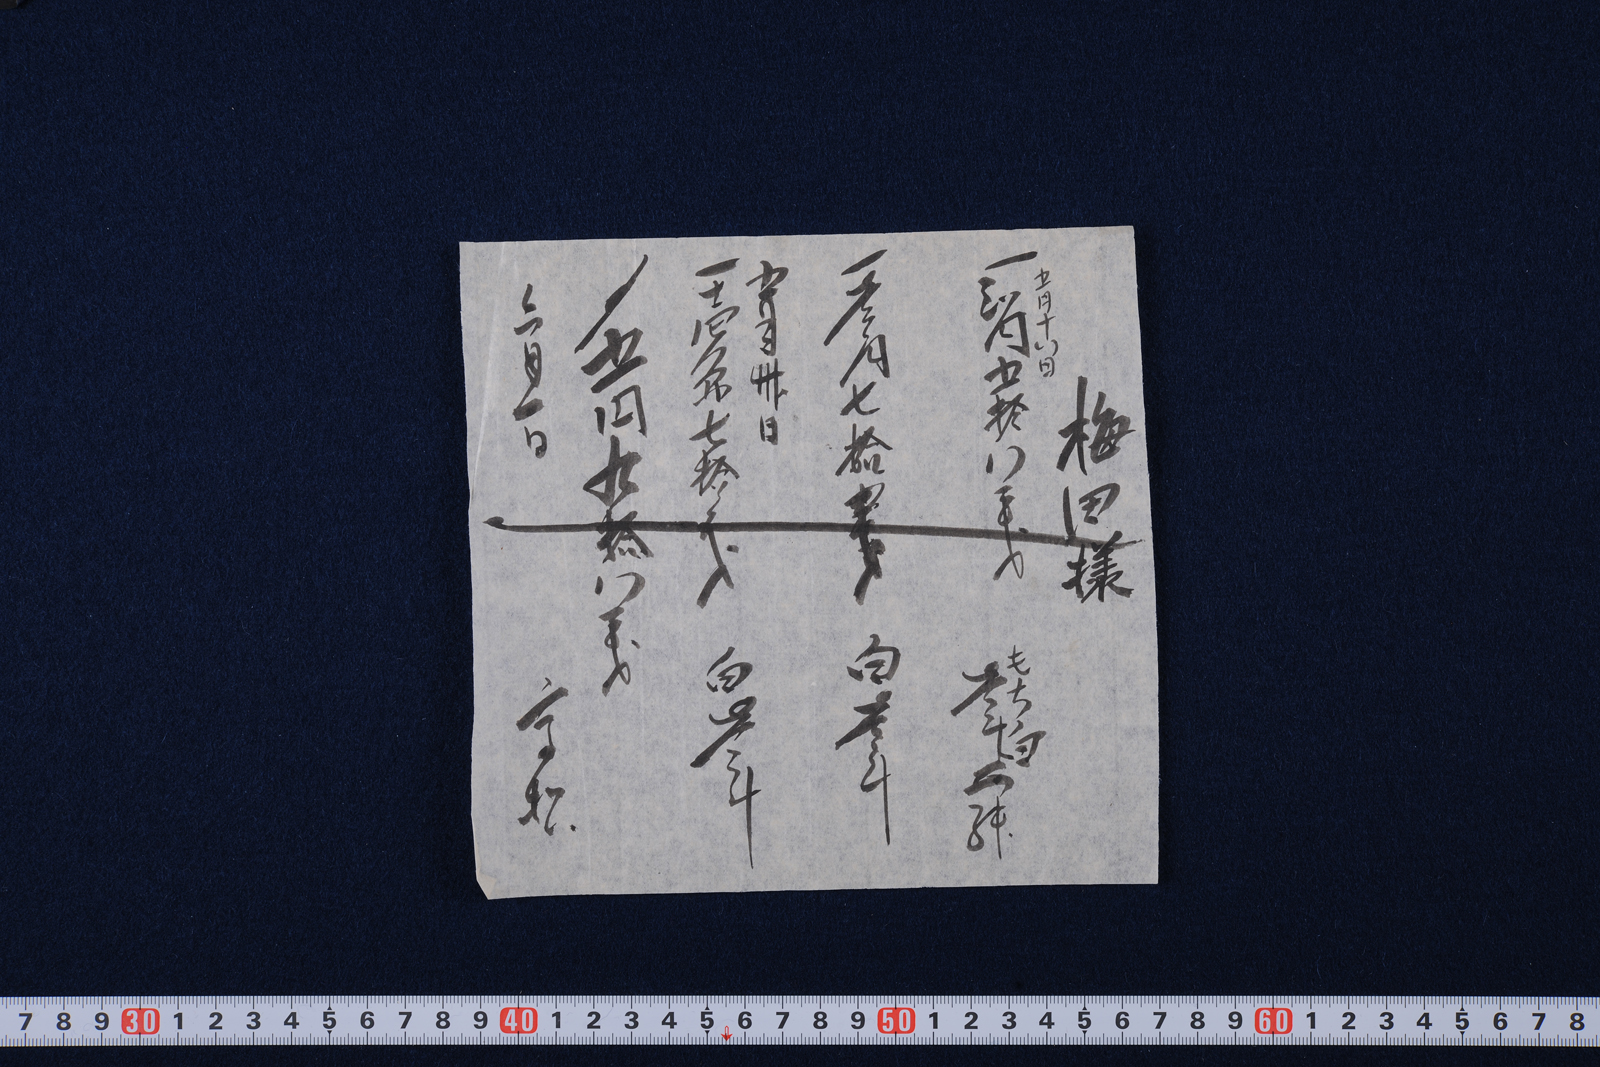 梅田様
五月十六日
一 弐円五拾八銭
もち白
壱斗五升
一 壱円七拾
白壱斗
五月卅日
一 壱円七拾
白壱斗
〆五円九拾八銭
六月一日
高松
7 8 9 30 1 2 3 4 5 6 7 8 9 40 1 2 3 4 5 6 7 8 9 50 1 2 3 4 5 6 7 8 9 60 1 2 3 4 5 6 7 8